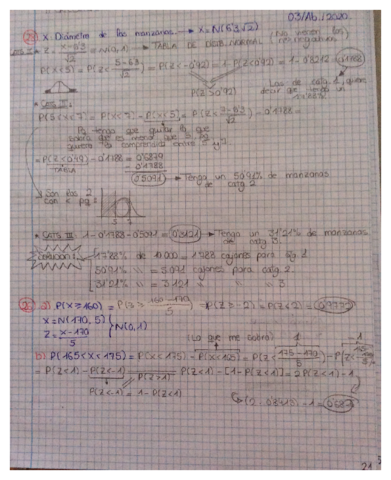 03/Ab./2020.
X: Diámetro de las manzanas → X = N(6'3, √2)
Z = X - 6'3 / √2 = N(0,1) → TABLA DE DISTR. NORMAL (No vienen los negativos)
P(X<5) = P(Z< 5-6'3 / √2) = P(Z<-0'92) = 1 - P(Z<0'92) = 1 - 0'8212 = 0'1788
P(Z>0'92)
Los de catg. 1, quiere decir que tengo un 17'88%
P(5<X<7) = P(X<7) - P(X<5) = P(Z< 7-6'3 / √2) - 0'1788 =
Pq tengo que quitar los que
sería que es menor que 5 pq
quiero los comprendidos entre 5 y 7
0'6879
0'1788
TABLA
0'5091 → Tengo un 50'91% de manzanas
de catg 2
Son los 2
con < pq =
5 7
CATG III: 1 - 0'1788 - 0'5091 = 0'3121 → Tengo un 31'21% de manzanas
de catg 3.
SOLUCIÓN: 17'88% de 10.000 = 1788 cajones para ctg. 1
50'91% " = 5.091 cajones para catg 2.
31'21% " = 3.121 " " " 3
a) P(X≥160) = P(Z≥ 160-170 / 5) = P(Z≥-2) = P(Z≤2) = 0'9772
X = N(170, 5)
Z = X-170 / 5
N(0,1)
(Lo que me sobra)
b) P(165<X<175) = P(X<175) - P(X<165) = P(Z< 175-170 / 5) - P(Z<
= P(Z<1) - P(Z<-1) = P(Z<1) - [1 - P(Z<1)] = 2P(Z<1) - 1
P(Z>1)
P(Z<-1) = 1 - P(Z<1)
21